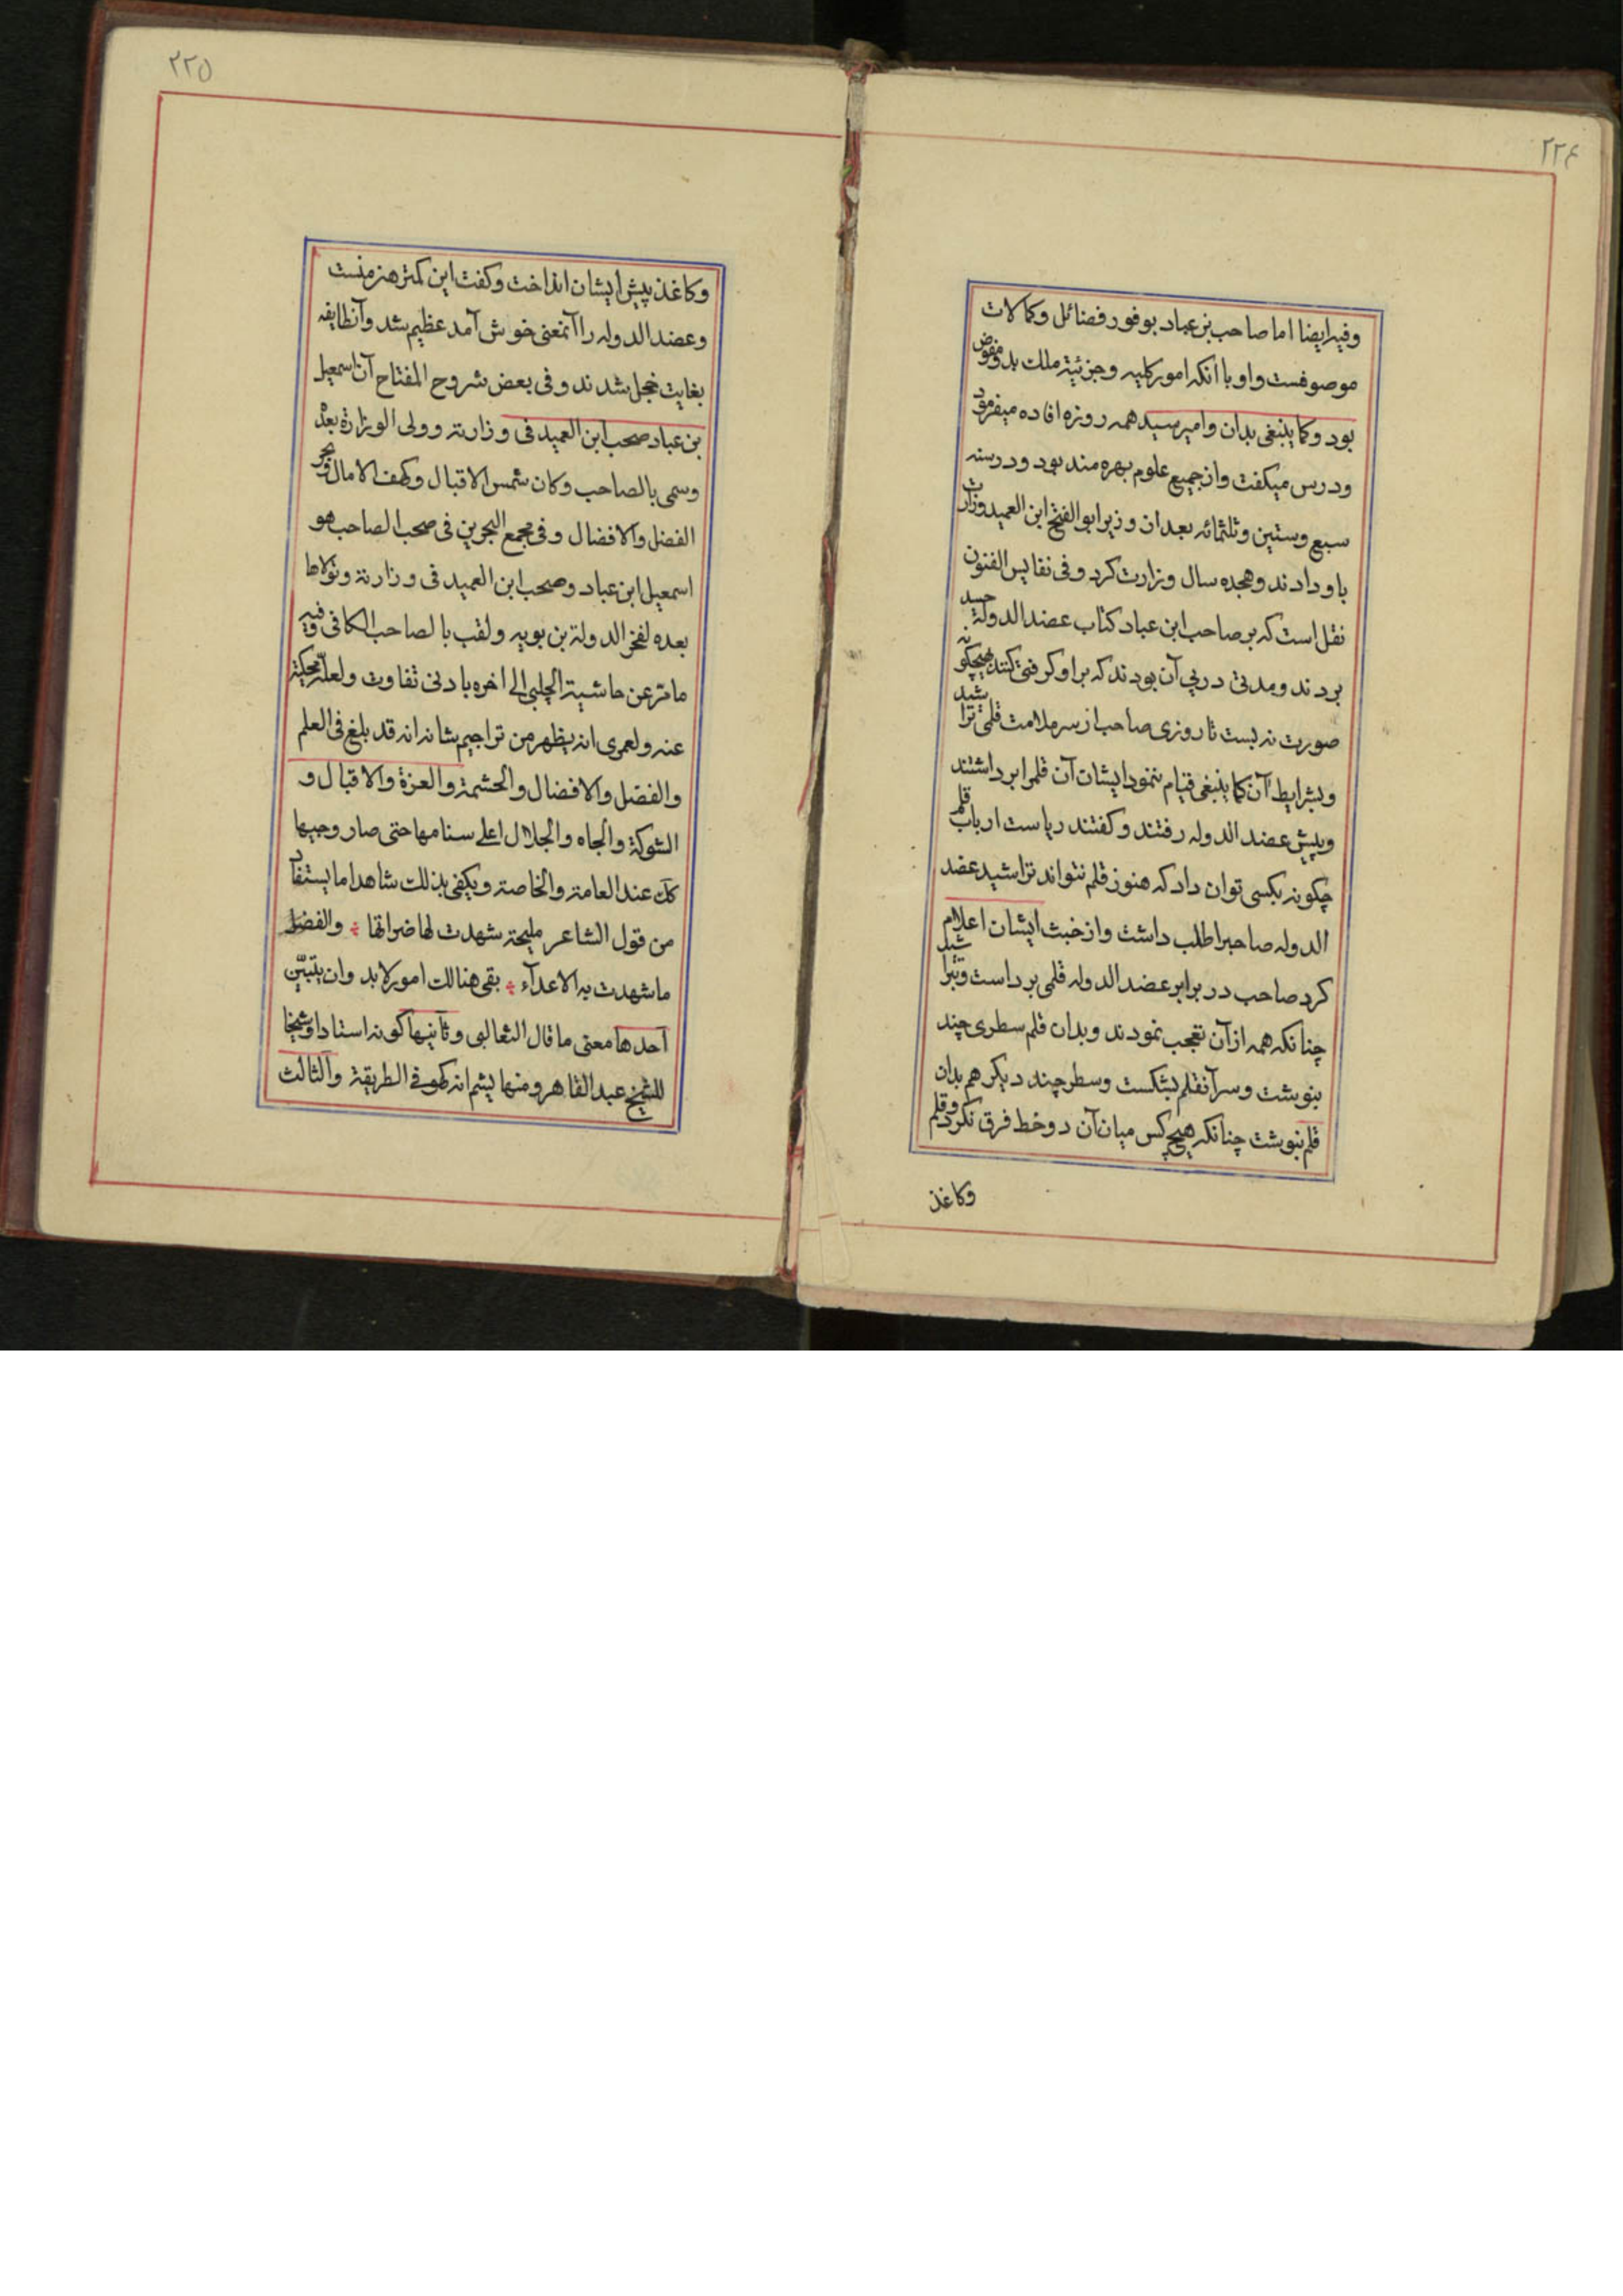 ٢٢٤
وفیه ایضا اما صاحب بن عباد بوفور فضائل وکمالات
موصوفست واو با انکه امور کلیه وجزئیة ملک بدو مفوض
بود وکما ینبغی بدان وامیرسید همه روزه افاده میفرمود
ودرس میکفت واز جمیع علوم بهره مند بود ودر سنه
سبع وستین وثلثمائه بعد ان وزیر ابو الفتح ابن العمید وزارت
باو دادند وهجده سال وزارت کرد وفی نفایس الفنون
نقل است که بر صاحب ابن عباد کتاب عضد الدولة حسد
بردند ومدتی در پی آن بودند که بر او کرفتی کنند هیچکونه
صورت نه بست تا روزی صاحب از سر ملامت قلمی تراشید
وبشرایط آن کما ینبغی قیام ننمود ایشان آن قلم را برداشتند
وپیش عضد الدوله رفتند وکفتند ریاست ارباب قلم
چکونه بکسی توان داد که هنوز قلم نتواند تراشید عضد
الدوله صاحبرا طلب داشت واز خبث ایشان اعلام
کرد صاحب در برابر عضد الدوله قلمی برداست وتبراشید
چنانکه همه ازآن تعجب نمودند وبدان قلم سطری چند
بنوشت وسر آنقلم بشکست وسطر چند دیکر هم بدان
قلم بنوبشت چنانکه هیچ کس میان آن دوخط فرق نکرد وقلم
وکاغذ
٢٢٥
وکاغذ پیش ایشان انداخت وکفت این کمتر هنر منست
وعضد الدوله را آنمعنی خوش آمد عظیم بشد وآنطایفه
بغایت خجل شدند وفی بعض شروح المفتاح آن اسمعیل
بن عباد صحب ابن العمید فی وزارته وولی الوزارة بعده
وسمی بالصاحب وکان شمس الاقبال وکهف الامال وبحر
الفضل والافضال وفی مجمع البحرین فی صحب الصاحب هو
اسمعیل ابن عباد وصحب ابن العمید فی وزارتة وتولاها
بعده لفخر الدولة بن بویه ولقب بالصاحب الکافی وفیه
ما مر عن حاشیة الچلبی الی اخره بادنی تفاوت ولعله محکیة
عنه ولعمری انه یظهر من تراجیم شانه انه قد بلغ فی العلم
والفضل والافضال والحشمة والعزة والاقبال و
الشوکة والجاه والجلال اعلی سنامها حتی صار وجیها
کل عند العامة والخاصة ویکفی بذلک شاهدا ما یستفاد
من قول الشاعر ملیحة شهدت لها ضراتها ؞ والفضل
ما شهدت به الاعدآء ؞ بقی هنالک امور لابد وان یتبین
آحدها معنی ما قال الثعالبی وثآنیها کونه استادا وشیخا
للشیخ عبد القاهر ومنها یشم انه کهو فی الطریقة وآلثالث